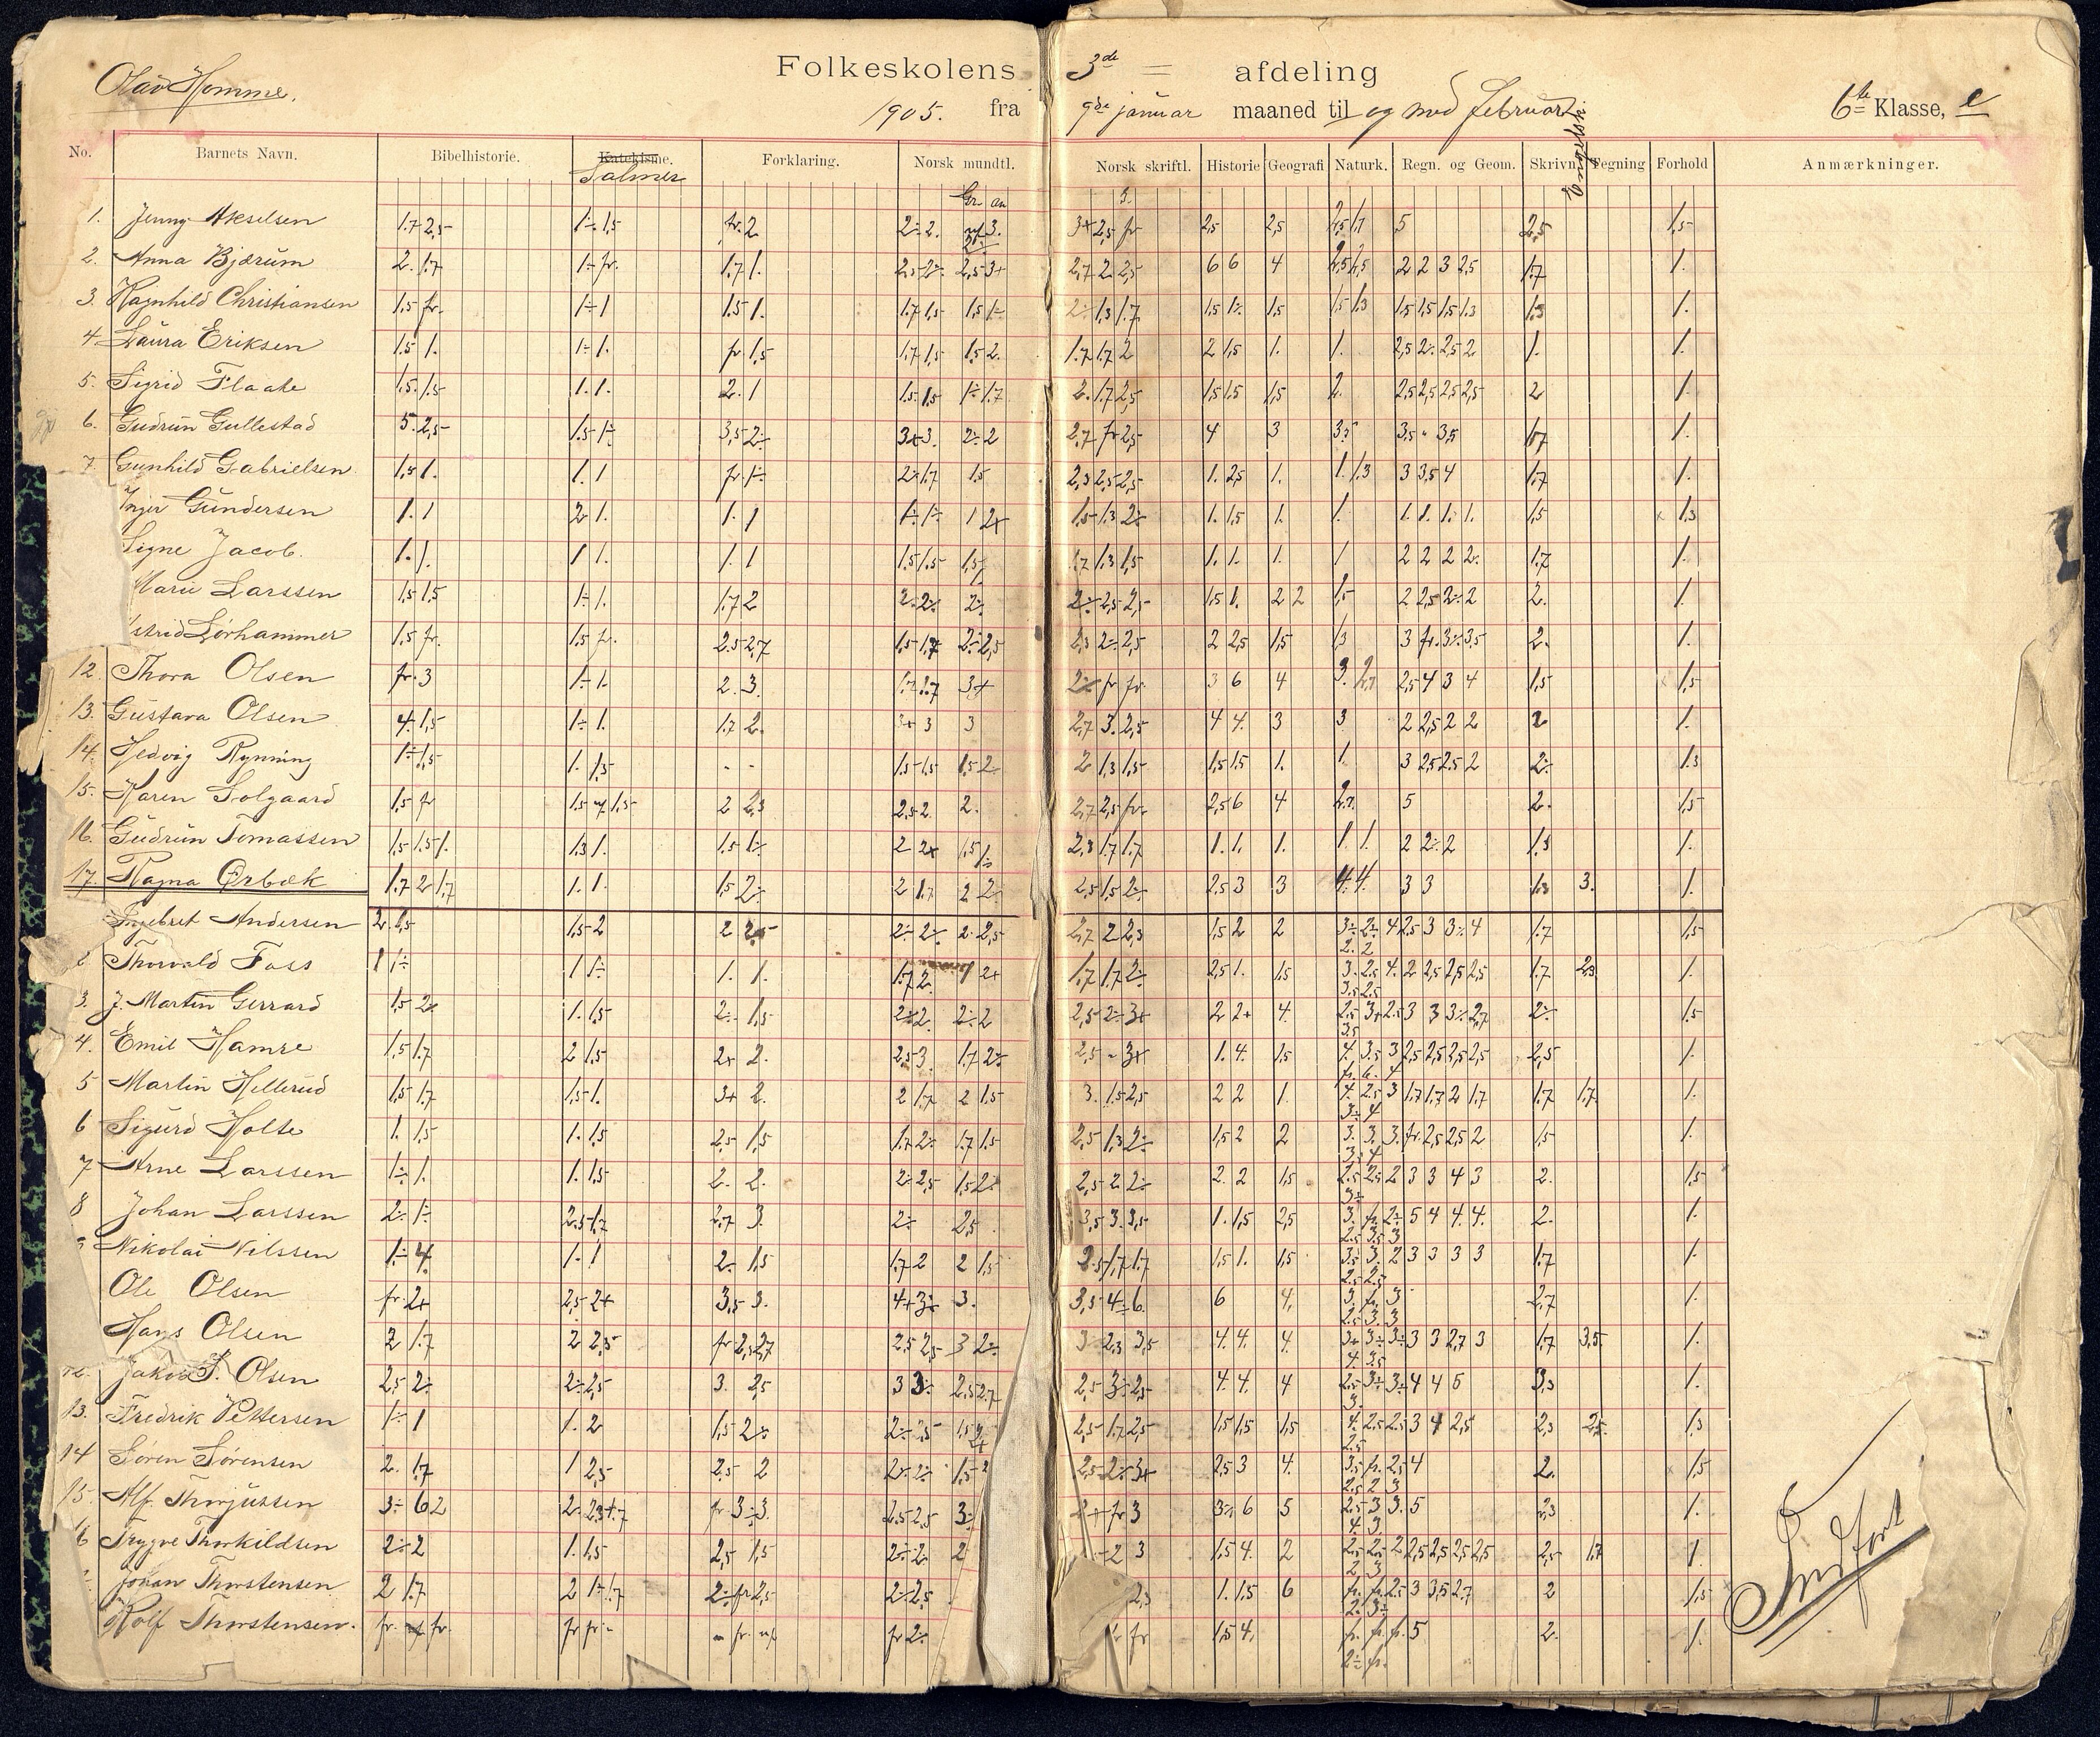 Folkeskolens 3de = afdeling
Olav Homme.
1905. fra 9de januar maaned til og med februar 6te Klasse, e
No. Barnets Navn. Bibelhistorie. Katekisme. Forklaring. Norsk mundtl. Norsk skriftl. Historie Geografi Naturk. Regn. og Geom. Skrivn. Tegning Forhold Anmærkninger.
Salmer
Gr. an
1. Jenny Akselsen 1.7 2,5 1÷ 1,5 fr. 2 2÷2. 3+ 2,5 fr 2,5 2,5 5 2,5 1,5
2. Anna Bjærum 2. 1.7 1÷ fr. 1.7 1. 2,5 2÷ 2,5 3+ 2,7 2 2,5 6 6 4 2 2 3 2,5 1.7 1.
3. Ragnhild Christiansen 1.5 fr. 1÷ 1 1.5 1. 1.7 1,5 1,5 1÷ 2÷ 1,3 1.7 1,5 1÷ 1,5 1,5 1,3 1,5 1,5 1,5 1,3 1.3 1.
4. Laura Eriksen 1.5 1. 1÷ 1. fr. 1,5 1.7 1,5 1.5 2. 1.7 1.7 2 2 1,5 1. 1. 2,5 2÷ 2,5 2 1. 1.
5. Sigrid Flaate 1.5. 1.5 1. 1. 2. 1 1.5 1,5 1÷ 1.7 2. 1.7 2,5 1,5 1,5 1,5 2. 2,5 2,5 2,5 2,5 2 1.
6. Gudrun Gullestad 5. 2,5 1.5 1÷ 3,5 2÷ 3+ 3. 2÷ 2 2,7 fr 2,5 4 3 3,5 3,5 " 3,5 1,7 1.
7. Gunhild Gabrielsen 1,5 1. 1. 1 fr. 1÷ 2÷ 1.7 1.5 2,3 2,5 2,5 1. 2,5 1. 1. 1,3 3 3,5 4 1.7 1.
Inger Gundersen 1. 1 2 1. 1. 1 1÷ 1÷ 1 2+ 1,5 1,3 2÷ 1. 1,5 1. 1. 1. 1. 1. 1. 1,5 1.3
Signe Jacob. 1. 1. 1 1. 1. 1 1.5 1.5 1,5 1.7 1,3 1,5 1. 1. 1. 1 2 2 2 2. 1.7 1.
Marie Larssen 1,5 1,5 1÷ 1. 1.7 2 2÷ 2÷ 2÷ 2÷ 2,5 2,5 1,5 1. 2 2 1,5 2 2,5 2÷ 2 2. 1.
strid Lørhammer 1,5 fr. 1,5 fr. 2.5 2,7 1,5 1,7 2÷ 2,5 2,3 2÷ 2,5 2 2,5 1,5 1,3 3 fr. 3÷ 3,5 2. 1.
12. Thora Olsen fr. 3 1÷ 1. 2. 3. 3+ 2÷ fr fr. 3 6 4 3. 2,5 4 3 4 1,5 1,5
13. Gustava Olsen 4. 1,5 1÷ 1. 1.7 2. 3+ 3 3 2,7 3. 2,5 4 4. 3 3 2 2,5 2 2 2 1.
14. Hedvig Rynning 1÷ 1,5 1. 1,5 - - 1.5 1,5 1,5 2÷ 2 1,3 1,5 1,5 1,5 1. 1. 3 2,5 2.5 2 2÷ 1.3
15. Karen Solgaard 1,5 fr 2 2,3 2,5 2. 2. 2,7 2,5 fr. 2,5 6 4 2,7. 5 2. 1,5
16. Gudrun Tomassen 1,5 1.5 1. 1,3 1. 1.5 1÷ 2 2+ 1,5 1÷ 2,3 1.7 1.7 1. 1. 1. 1. 1. 2 2÷ 2 1.3 1.
17. Ragna Ørbæk 1.7 2 1.7 1. 1. 1.5 2÷ 2 1.7 2 2÷ 2,5 1,5 2÷ 2,5 3 3 4. 4. 3 3 1.3 3. 1.
Ingebret Andersen 2. 1,5 1,5 2 2 2,5 2÷ 2÷ 2 2,5 2,7 2 2,3 1,5 2 2 3÷ 2÷ 4 2.5 3 3÷ 4 1.7 1,5
2. 2
2 Thorvald Foss 1 1÷ 1 1÷ 1. 1. 1.7 2. 2+ 1.7 1.7 2÷ 2,5 1. 1,5 3. 2.5 4. 2 2,5 2,5 2,5 1.7 2,3 1.
3.5 2.5
3. J. Martin Gerrard 1.5 2÷ 1. 1,5 2÷ 1,5 2÷ 2. 2÷ 2 2,5 2÷ 3+ 2 2+ 4. 2.5 3+ 2.5 3 3 3÷ 2,7 2÷ 1.5
3.5
4. Emil Hamre 1,5 1.7 2 1,5 2+ 2. 2.5 3 1.7 2÷ 2,5 - 3+ 1. 4. 1,5 4. 3.5 3 2,5 2,5 2,5 2,5 2,5 1.
fr. 6. 4
5 Martin Hellerud 1,5 1.7 1,5 1. 3+ 2. 2 1.7 2 1.5 3. 1.5 2,5 2 2 1 4. 2.5 3 1.7 1.7 2 1.7 1.7 1.7 1.
3÷ 4
6 Sigurd Holte 1. 1,5 1. 1,5 2,5 1,5 1.7 2÷ 1.7 1,5 2,5 1,3 2÷ 1,5 2 2 3. 3. 3. fr. 2,5 2,5 2 1,5 1.
3. 4
7 Arne Larssen 1÷ 1. 1. 1.5 2. 2. 2÷ 2,5 1,5 2÷ 2,5 2 2÷ 2. 2 1,5 2.5 2.5 2 3 3 4 3 2. 1,5
3÷
8 Johan Larssen 2÷ 1÷ 2.5 1.7 2,7 3. 2÷ 2,5 3,5 3. 3,5 1. 1,5 2,5 3. fr. 2÷ 5 4 4. 4. 2. 1.
2.5 3.5 3
Nikolai Nilssen 1÷ 4. 1÷ 1 2÷ 1,5 1.7 2 2 1,5 2.5 1.7 1.7 1,5 1. 1,5 3.5 3. 2 3 3 3 3 1.7 1.
2.5 2.5
Ole Olsen fr. 2+ 2,5 2+ 3,5 3. 4+ 3÷ 3. 3,5 4÷ 6. 6 4. 3. fr. 3 2,7 1.
2.5 3. 3
Hans Olsen 2 1.7 2 2,5 fr 2,3 2,7 2.5 2,5 3 2÷ 3 2,3 3,5 4. 4. 4. 3+ 3÷ 3÷ 3 3 2,7 3 1.7 3.5. 1.
4. 3.5
12. Jakob S. Olsen 2,5 2÷ 2÷ 2,5 3. 2,5 3 3÷ 2,5 2.7 2,5 3÷ 2,5 4. 4. 4 2.5 3÷ 3÷ 4 4 6 3,5 1.
3.
13. Fredrik Pettersen 1÷ 1 1. 2 1,5 2÷ 2÷ 2,5 1,5 2+ 2,5 1.7 2,5 1,5 1,5 1,5 4. 2.5 2.5 3 4 2,5 2,3 2,5. 1,3
2.5
14 Søren Sørensen 2. 1.7 1 2,5 2,5 2 2÷ 2÷ 1,5 2,5 2÷ 3+ 2,5 3 4. 3.5 fr. 2.5 4 2. 1,5
2.5 2 3
15. Alf. Thorjussen 3÷ 6 2 fr. 3÷ 3. 2.5 2,5 3÷ 2+ fr 3 3÷ 6 5 2.5 3 3. 5 2,3 1.
4. 3.
6 Trygve Thorkildsen 2÷ 2 1. 1,5 2,5 1,5 2÷ 2 2 2 3 1,5 4. 2 2.5 2.5 2 2,5 2,5 2,5 2,5 2,5 1.7 1.
2 3
Johan Thorstensen 2 1.7 2 1÷ 1.7 2÷ fr 2,5 2÷ 2,5 2,3 1. 1,5 6 fr. fr. 2.5 3 3,5 2,7 2 1,5
2. 3÷
Rolf Thorstensen. fr. fr. fr fr. fr. fr 2÷ fr 1,5 4. fr. fr. fr. 5 2. 1.
2÷ fr.
Indført